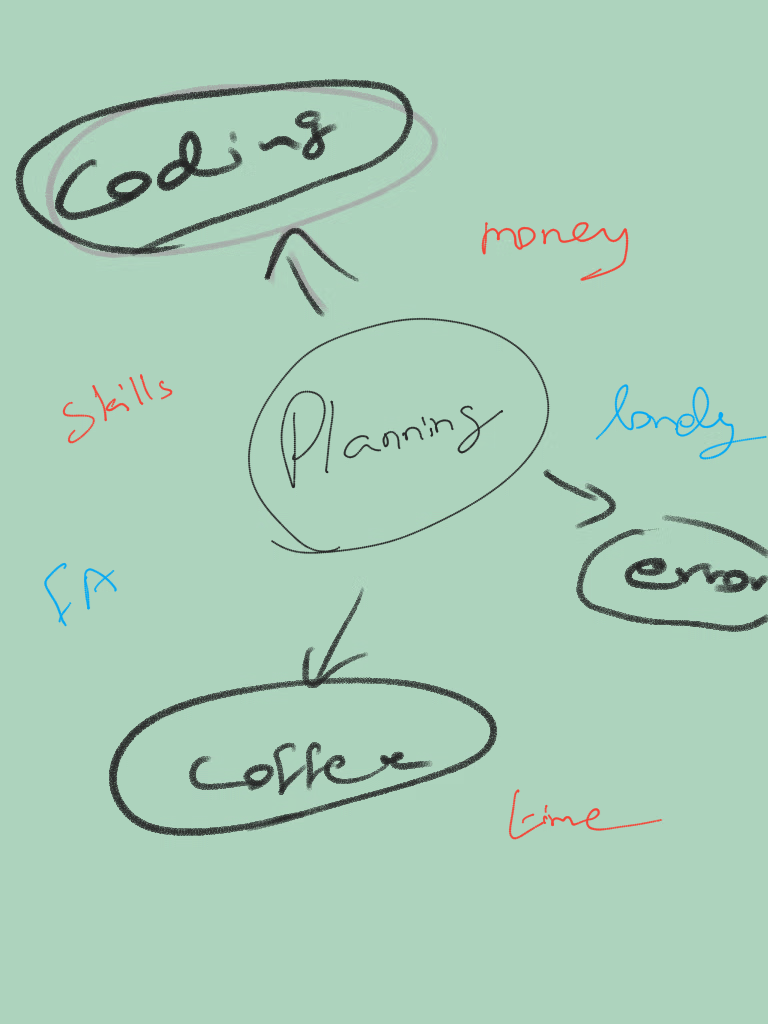 coding
money
skills
Planning
lonely
error
FA
coffee
time